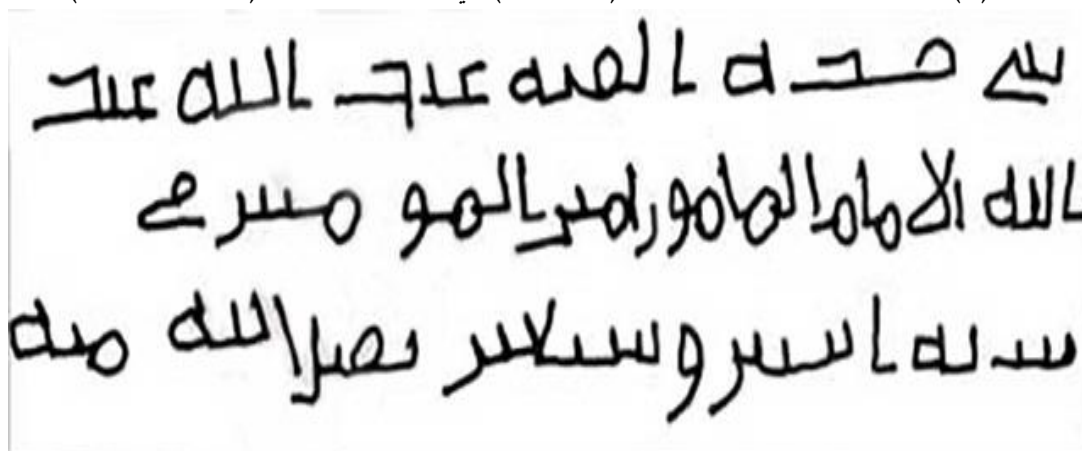 بنى هذه القبة عبد الله عبد
الله الامام المامون امير المومنين في
سنة اثنين وسبعين تقبل الله منه